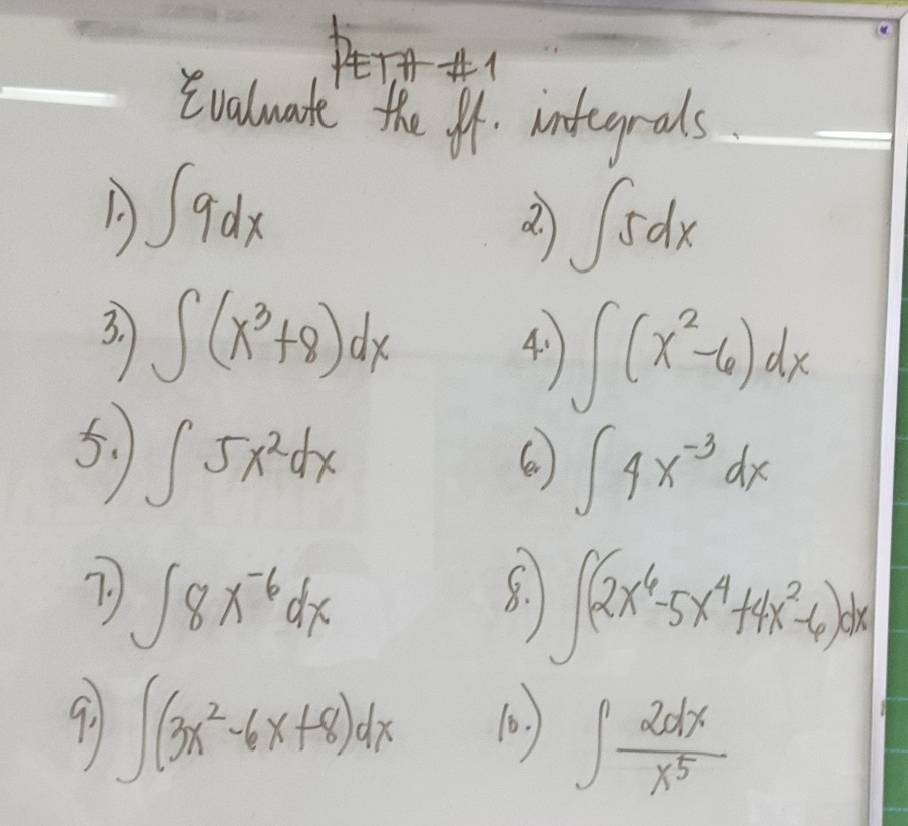 PETA #1
Evaluate the ff. integrals.
1.) ∫9dx 2.) ∫5dx
3.) ∫(x³+8)dx 4.) ∫(x²-6)dx
5.) ∫5x²dx 6.) ∫4x⁻³dx
7.) ∫8x⁻⁶dx 8.) ∫(2x⁶-5x⁴+4x²-6)dx
9.) ∫(3x²-6x+8)dx 10.) ∫2dx/x⁵